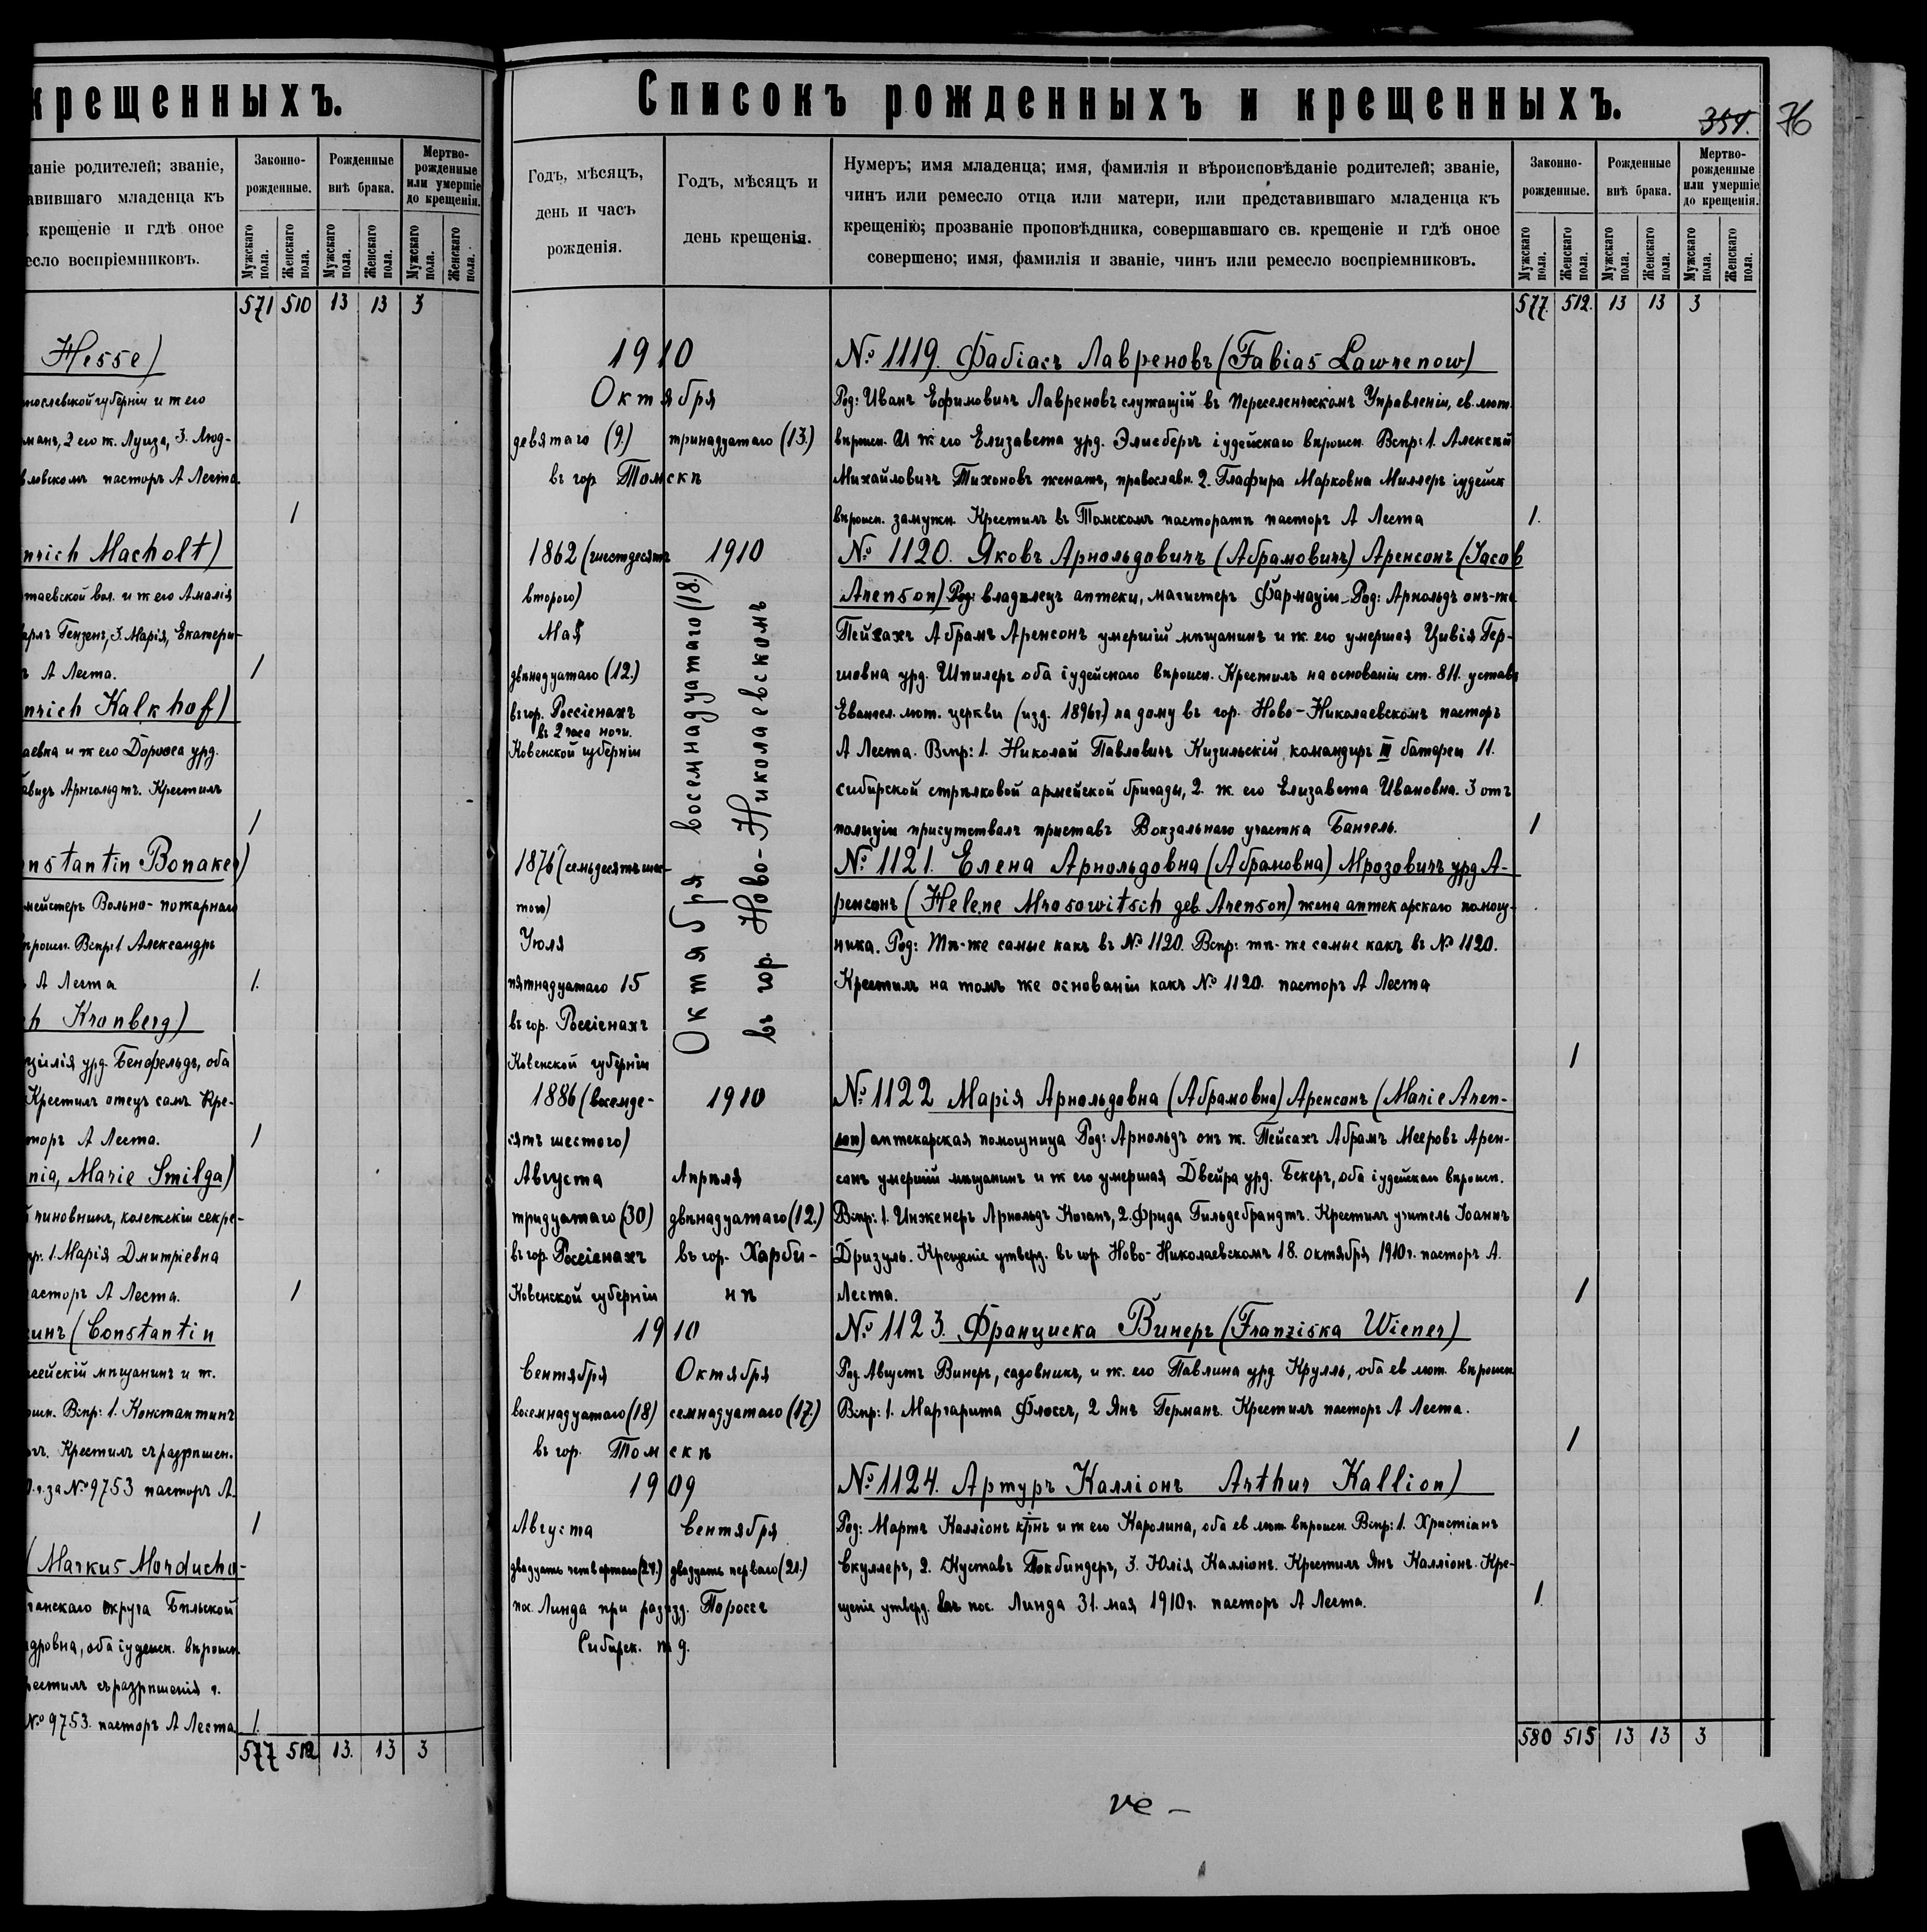 крещенныхъ.
даніе родителей; званіе,
авившаго младенца къ
крещеніе и гдѣ оное
есло воспріемниковъ.
Законно-
рожденные.
Рожденные
внѣ брака.
Мертво-
рожденные
или умершіе
до крещенія.
Мужскаго пола.
Женскаго пола.
Мужскаго пола.
Женскаго пола.
Мужскаго пола.
Женскаго пола.
571 510 13 13 3
Hesse)
нославской губерніи и ж его
манъ, 2 его ж. Луиза, 3. Люд-
вловскомъ пасторъ А Леста
1
nrich Macholt)
таевской вол. и ж его Амалія
арлъ Гензенъ, 3. Марія, Екатери-
ъ А Леста. 1
nrich Kalkhof)
аевка и ж его Доротея урд.
авидъ Арнгольдтъ. Крестилъ
1
onstantin Bonaker)
мейстеръ Вольно-пожарнаго
вѣроисп. Вспр: 1 Александръ
А Леста 1.
h Kronberg)
цилія урд. Бенфельдъ, оба
Крестилъ отецъ самъ Кре-
торъ А Леста. 1
nia, Marie Smilga)
чиновникъ, колежскій секре-
пр: 1. Марія Дмитріевна
асторъ А Леста. 1
инъ (Constantin
ейскій мѣщанинъ и ж.
оисп. Вспр: 1. Константинъ
ъ. Крестилъ съ разрѣшен.
0.г. за № 9753 пасторъ А.
1
(Markus Morducho-
ганскаго округа Бѣльской
дровна, оба іудейск. вѣроисп.
рестилъ съ разрѣшенія г.
№ 9753. пасторъ А Леста 1.
577 512 13. 13 3
Списокъ рожденныхъ и крещенныхъ.
354. 76
Годъ, мѣсяцъ,
день и часъ
рожденія.
Годъ, мѣсяцъ и
день крещенія.
Нумеръ; имя младенца; имя, фамилія и вѣроисповѣданіе родителей; званіе,
чинъ или ремесло отца или матери, или представившаго младенца къ
крещенію; прозваніе проповѣдника, совершавшаго св. крещеніе и гдѣ оное
совершено; имя, фамилія и званіе, чинъ или ремесло воспріемниковъ.
Законно-
рожденные.
Рожденные
внѣ брака.
Мертво-
рожденные
или умершіе
до крещенія.
Мужскаго пола.
Женскаго пола.
Мужскаго пола.
Женскаго пола.
Мужскаго пола.
Женскаго пола.
577. 512. 13 13 3
1910
Октября
девятаго (9.) тринадцатаго (13.)
въ гор. Томскѣ
№ 1119. Фабіасъ Лавреновъ (Fabias Lawrenow)
Род: Иванъ Ефимовичъ Лавреновъ служащій въ Переселенческомъ Управленіи, ев. лют.
вѣроисп. И ж его Елизавета урд. Элисбергъ іудейскаго вѣроисп. Вспр: 1. Алексѣй
Михайловичъ Тихоновъ женатъ, православн. 2. Глафира Марковна Миллеръ іудейск
вѣроисп. замужн. Крестилъ въ Томскомъ пасторатѣ пасторъ А Леста 1.
1862 (шестдесятъ
второго)
Мая
двѣнадцатаго (12.)
въ гор. Россіенахъ
въ 2 часа ночи.
Ковенской губерніи
1910
Октября восемнадцатаго (18.)
въ гор. Ново-Николаевскомъ
№ 1120. Яковъ Арнольдовичъ (Абрамовичъ) Аренсонъ (Jacob
Arenson) Род: владѣлецъ аптеки, магистеръ Фармаціи. Род: Арнольдъ онъ-же
Пейсахъ Абрамъ Аренсонъ умершій мѣщанинъ и ж. его умершая Цивія Гер-
шовна урд. Шпилеръ оба іудейскаго вѣроисп. Крестилъ на основаніи ст. 811. устава
Евангел. лют. церкви (изд. 1896г.) на дому въ гор. Ново-Николаевскомъ пасторъ
А Леста. Вспр: 1. Николай Павловичъ Кизильскій, командиръ III батареи 11.
сибирской стрѣлковой армейской бригады, 2. ж. его Елизавета Ивановна. 3 отъ
полиціи присутствалъ приставъ Вокзальнаго участка Бангель. 1
1876 (семьдесятъ шес-
того)
Іюля
пятнадцатаго 15
въ гор. Россіенахъ
Ковенской губерніи
№ 1121. Елена Арнольдовна (Абрамовна) Мрозовичъ урд А-
ренсонъ (Helene Mrosowitsch geb. Arenson) жена аптекарскаго помощ-
ника. Род: Тѣ-же самые какъ въ № 1120. Вспр: тѣ-же самые какъ въ № 1120.
Крестилъ на томъ же основаніи какъ № 1120. пасторъ А Леста
1
1886 (восемде-
сятъ шестого)
Августа
тридцатаго (30)
въ гор. Россіенахъ
Ковенской губерніи
1910
Апрѣля
двѣнадцатаго (12.)
въ гор. Харби-
нѣ
№ 1122 Марія Арнольдовна (Абрамовна) Аренсонъ (Marie Aren-
son) аптекарская помощница Род: Арнольдъ онъ ж. Пейсахъ Абрамъ Мееровъ Арен-
сонъ умершій мѣщанинъ и ж его умершая Двейра урд. Бекеръ, оба іудейскаго вѣроисп.
Вспр: 1. Инженеръ Арнольдъ Коганъ, 2. Фрида Гильдебрандтъ. Крестилъ учитель Іоаннъ
Дризуль. Крещеніе утверд. въ гор. Ново-Николаевскомъ 18. октября 1910г. пасторъ А.
Леста. 1
1910
Сентября Октября
восемнадцатаго (18) семнадцатаго (17.)
въ гор. Томскѣ
№ 1123. Франциска Винеръ (Franziska Wiener)
Род Августъ Винеръ, садовникъ, и ж. его Павлина урд Крулль, оба ев лют. вѣроисп
Вспр: 1. Маргарита Флюссъ, 2 Янъ Германъ. Крестилъ пасторъ А Леста.
1
1909
Августа Сентября
двадцать четвертаго (24.) двадцать перваго (21.)
пос. Линда при разъѣзд. Поросъ
Сибирск. ж д.
№ 1124. Артуръ Калліонъ Arthur Kallion)
Род: Мартъ Калліонъ крнъ и ж его Каролина, оба ев лют вѣроисп. Вспр: 1. Христіанъ
Скуллеръ, 2. Куставъ Покбиндеръ, 3. Юлія Калліонъ. Крестилъ Янъ Калліонъ. Кре-
щеніе утверд. въ пос. Линда 31. мая 1910г. пасторъ А Леста. 1.
580 515 13 13 3